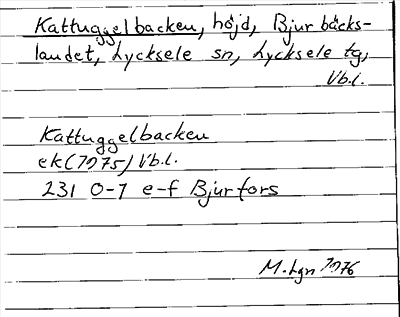 Kattuggelbacken, höjd, Bjurbäcks-
landet, Lycksele sn, Lycksele tg,
Vb.l.
Kattuggelbacken
ek(1975) Vb.l.
231 0-1 e-f Bjurfors
M.Lgn 1976